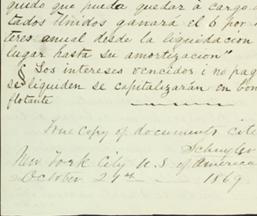 quido que pueda quedar á cargo d
tados Unidos ganará el 6 por
teres anual desde la liquidacion
lugar hasta su amortizacion"
§ Los intereses vencidos i no pag
se liquiden se capitalizarán en bon
flotante
True Copy of documents cite
Schuyler
New York City U.S. of America
October 27th 1869